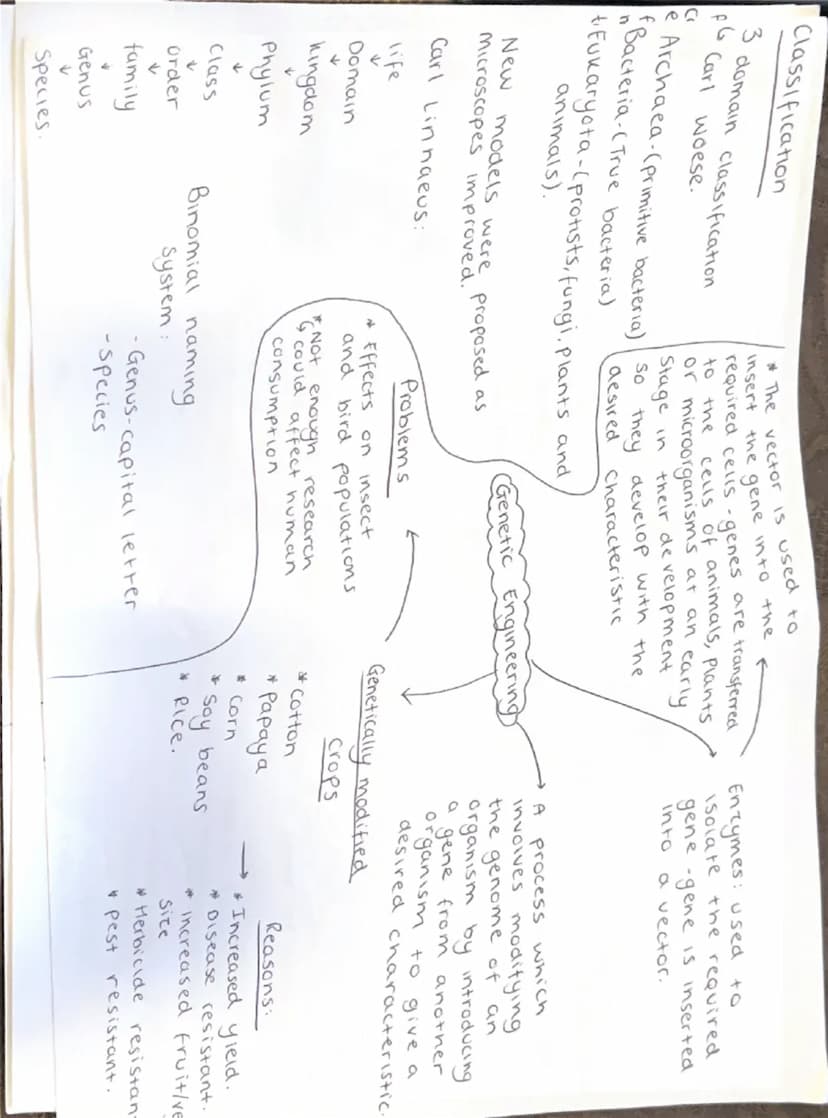 Classification
3 domain classification
Carl Woese.
Archaea-(primitive bacteria)
Bacteria-(True bacteria)
Eukaryota-(protists, fungi, plants and
animals).
New models were proposed as
microscopes improved.
Carl Linnaeus:
life
↓
Domain
↓
kingdom
↓
Phylum
↓
Class
↓
order
↓
family
↓
Genus
↓
Species.
Binomial naming
system:
- Genus-capital letter
- Species
* The vector is used to
insert the gene into the
required cells - genes are transferred
to the cells of animals, plants
or microorganisms at an early
stage in their development
so they develop with the
desired characteristic
Enzymes: used to
isolate the required
gene - gene is inserted
into a vector.
Genetic Engineering
A process which
involves modifying
the genome of an
organism by introducing
a gene from another
organism to give a
desired characteristic.
Problems
* Effects on insect
and bird populations
* Not enough research
↳ could affect human
consumption
Genetically modified
crops
* cotton
* Papaya
* corn
* Soy beans
* Rice.
Reasons:
→ * Increased yield.
* Disease resistant.
* increased fruit/ve
size
* Herbicide resistan
* pest resistant.